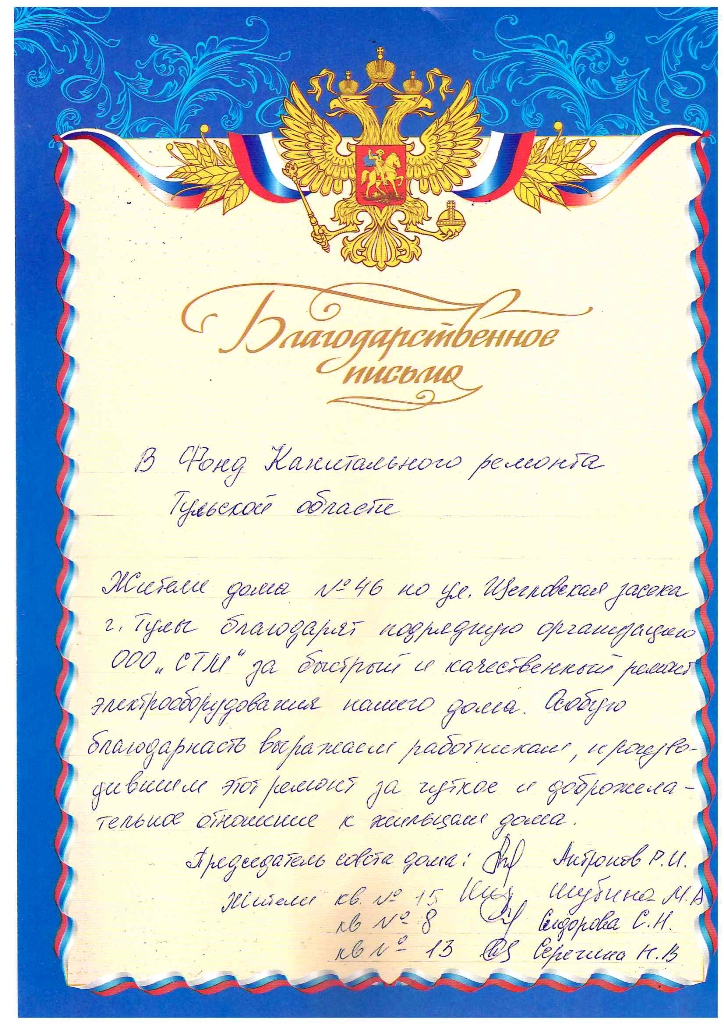 Благодарственное
письмо
В Фонд Капитального ремонта
Тульской области
Жители дома №46 по ул. Щегловская засека
г. Тулы благодарят подрядную организацию
ООО „СТМ“ за быстрый и качественный ремонт
электрооборудования нашего дома. Особую
благодарность выражаем работникам, произво-
дившим этот ремонт за чуткое и доброжела-
тельное отношение к жильцам дома.
Председатель совета дома: Антропов Р.И.
Жители кв. №15 Шубина М.А
кв №8 Сидорова С.Н.
кв № 13 Серегина Н.В